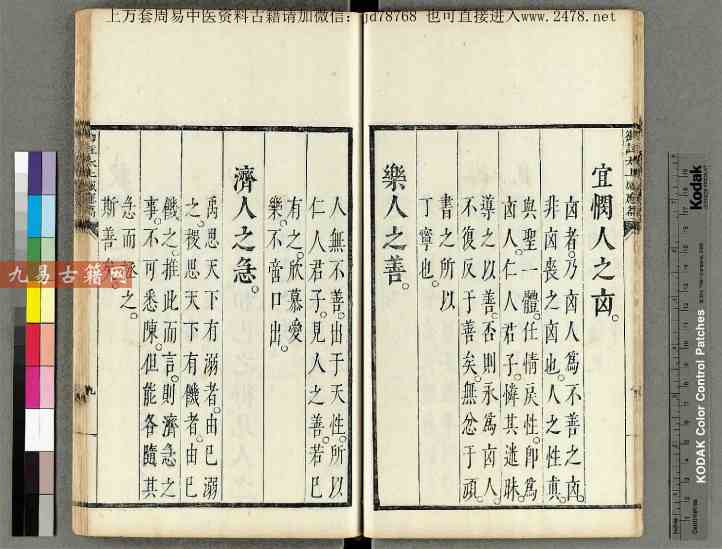 上万套周易中医资料古籍请加微信:jd78768 也可直接进入www.2478.net
宜憫人之㐫。
㐫者。乃㐫人爲不善之㐫。
非㐫喪之㐫也。人之性眞。
與聖一體。任情戾性。卽爲
㐫人。仁人君子。憐其迷昧。
導之以善。否則永爲㐫人。
不復反于善矣。無忿于頑。
書之所以
丁寧也。
樂人之善。
人無不善。出于天性。所以
仁人君子。見人之善。若已
有之。欣慕愛
樂。不啻口出。
濟人之急。
禹思天下有溺者。由已溺
之。稷思天下有饑者。由已
饑之。推此而言。則濟急之
事。不可悉陳。但能各隨其
急而承之。
斯善矣。
九易古籍网
KODAK Color Control Patches
Kodak